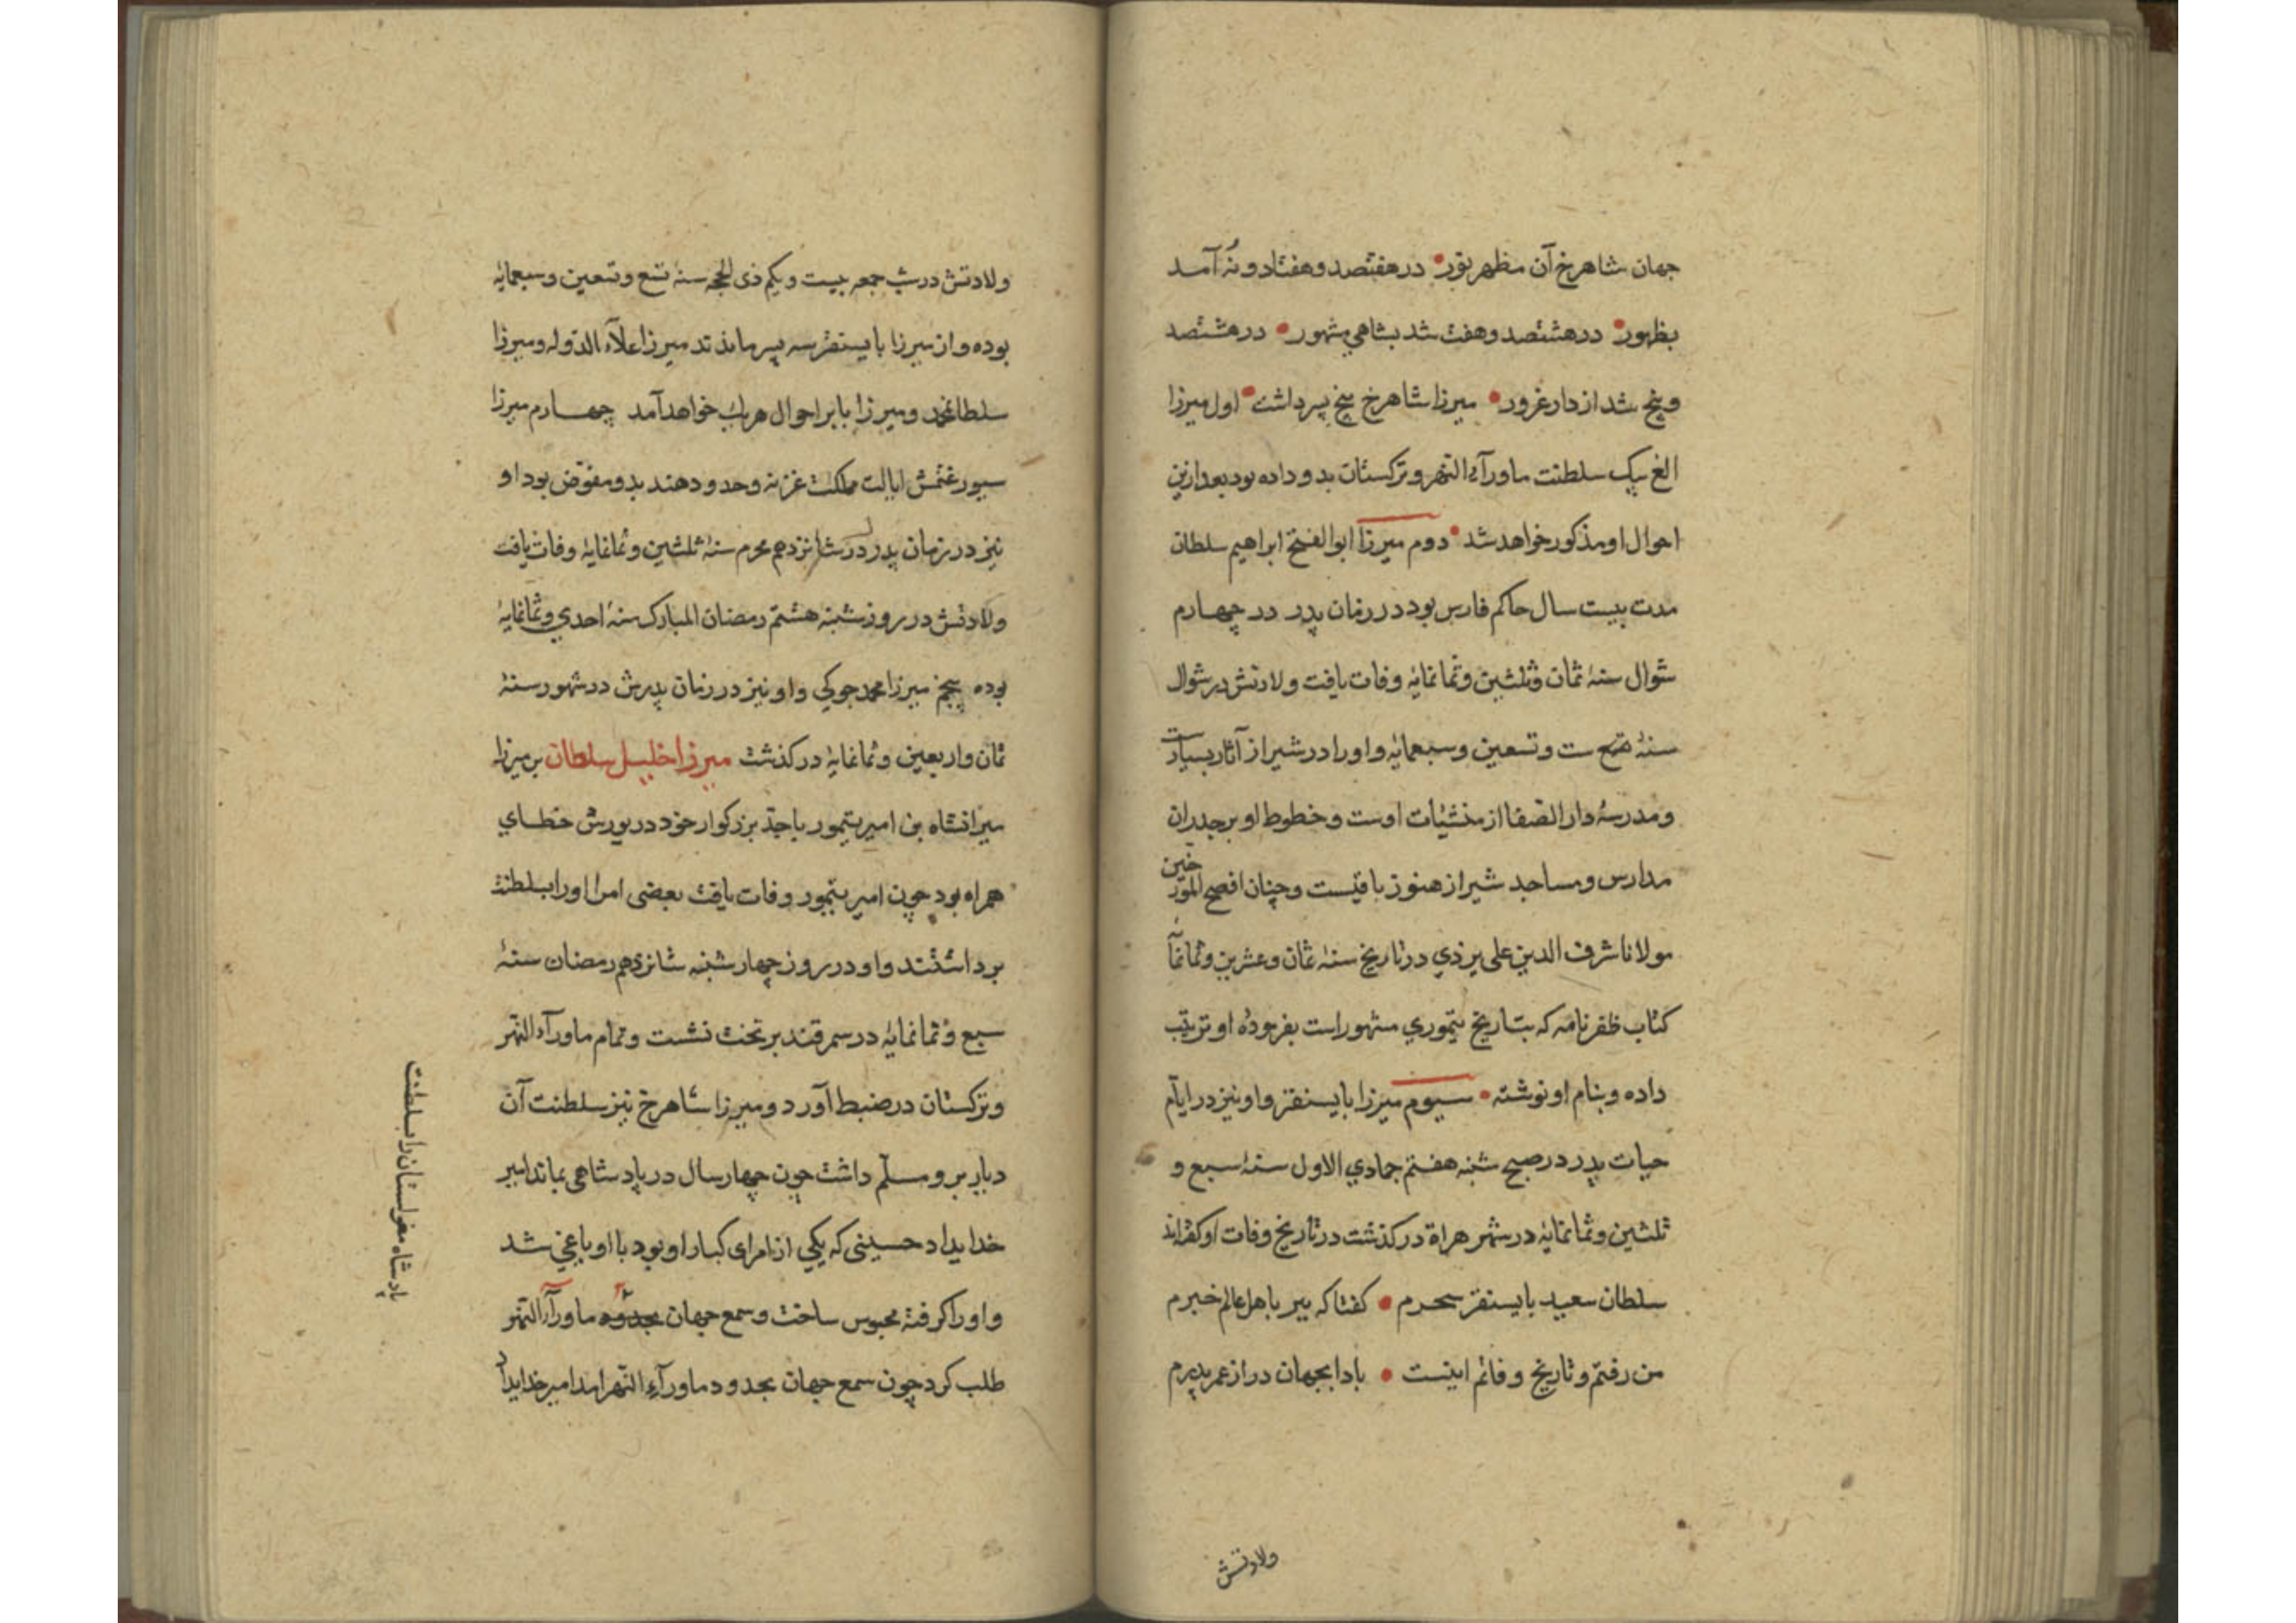 جهان شاهرخ آن مظهر نور در هفتصد و هفتاد و نُه آمد
بظهور در هشتصد و هفت شد بشاهي مشهور در هشتصد
و پنج شد از دار غرور میرزا شاهرخ پنج پسر داشت اول میرزا
الغ بیک سلطنت ماورآء النهر و ترکستان بدو داده بود بعد ازین
احوال او مذکور خواهد شد دوم میرزا ابوالفتح ابراهیم سلطان
مدت بیست سال حاکم فارس بود در زمان پدر در چهارم
شوال سنۀ ثمان و ثلثین و ثمانمایۀ وفات یافت ولادتش در شوال
سنۀ ست و تسعین و سبعمایۀ و او را در شیراز آثار بسیارست
و مدرسۀ دار الصفا از منشیٔات اوست و خطوط او بر جدران
مدارس و مساجد شیراز هنوز باقیست و چنان افصح المورخین
مولانا شرف الدین علی یزدي در تاریخ سنۀ ثمان و عشرین و ثمانمأ
کتاب ظفرنامه که بتاریخ تیموري مشهور است بفرمودۀ او ترتیب
داده و بنام او نوشته سیوم میرزا بایسنقر و او نیز در ایام
حیات پدر در صبح شنبه هفتم جمادي الاول سنۀ سبع و
ثلثین و ثمانمایۀ در شهر هراة درکذشت در تاریخ وفات او کفته‌اند
سلطان سعید بایسنقر سحرم کفتا که ببر باهل عالم خبرم
من رفتم و تاریخ وفاتم اینست بادا بجهان دراز عمر پدرم
ولادتش
ولادتش در شب جمعه بیست و یکم ذی الحجه سنۀ تسع و تسعین و سبعمایۀ
بوده و از میرزا بایسنقر سه پسر ماندند میرزا علآء الدوله و میرزا
سلطانمحمد و میرزا بابر احوال هر یک خواهد آمد چهارم میرزا
سیورغتمش ایالت مملکت غزنه و حدود هند بدو مفوّض بود او
نیز در زمان پدر در شانزدهم محرم سنۀ ثلثین و ثمانمایۀ وفات یافت
ولادتش در روز شنبه هشتم رمضان المبارک سنۀ احدي و ثمانمایۀ
بوده پنجم میرزا محمد جوکي و او نیز در زمان پدرش در شهور سنۀ
ثمان و اربعین و ثمانمایۀ درکذشت میرزا خلیل سلطان بن میرزا
میرانشاه بن امیر تیمور با جدّ بزرکوار خود در یورش خطاي
همراه بود چون امیر تیمور وفات یافت بعضی امرا او را بسلطنت
برداشتند و او در روز چهارشنبه شانزدهم رمضان سنۀ
سبع و ثمانمایۀ در سمرقند بر تخت نشست و تمام ماورآء النهر
و ترکستان در ضبط آورد و میرزا شاهرخ نیز سلطنت آن
دیار برو مسلّم داشت چون چهار سال در پادشاهی بماند امیر
خدایداد حسینی که یکي از امرای کبار او بود با او یاغي شد
و او را کرفته محبوس ساخت و سمع جهان ماورآء النهر
طلب کرد چون سمع جهان بحدود ماورآء النهر امد امیر خدایداد
پادشاه مغولستان را بسلطنت